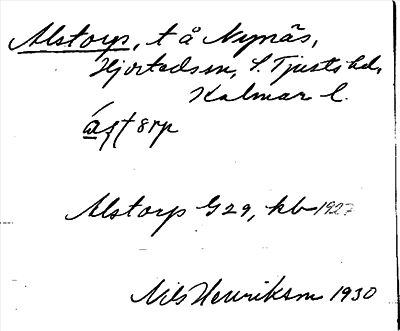 Alstorp, t å Nynäs,
Hjortedsem, S. Tjusts hd,
Kalmar l.
Alstorp G29, kb 1927
Nils Henriksson 1930